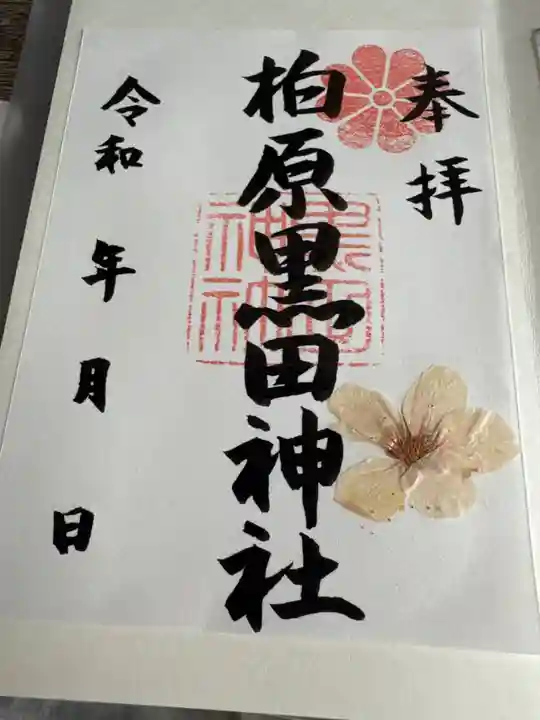 奉拝
柏原黒田神社
令和 年 月 日